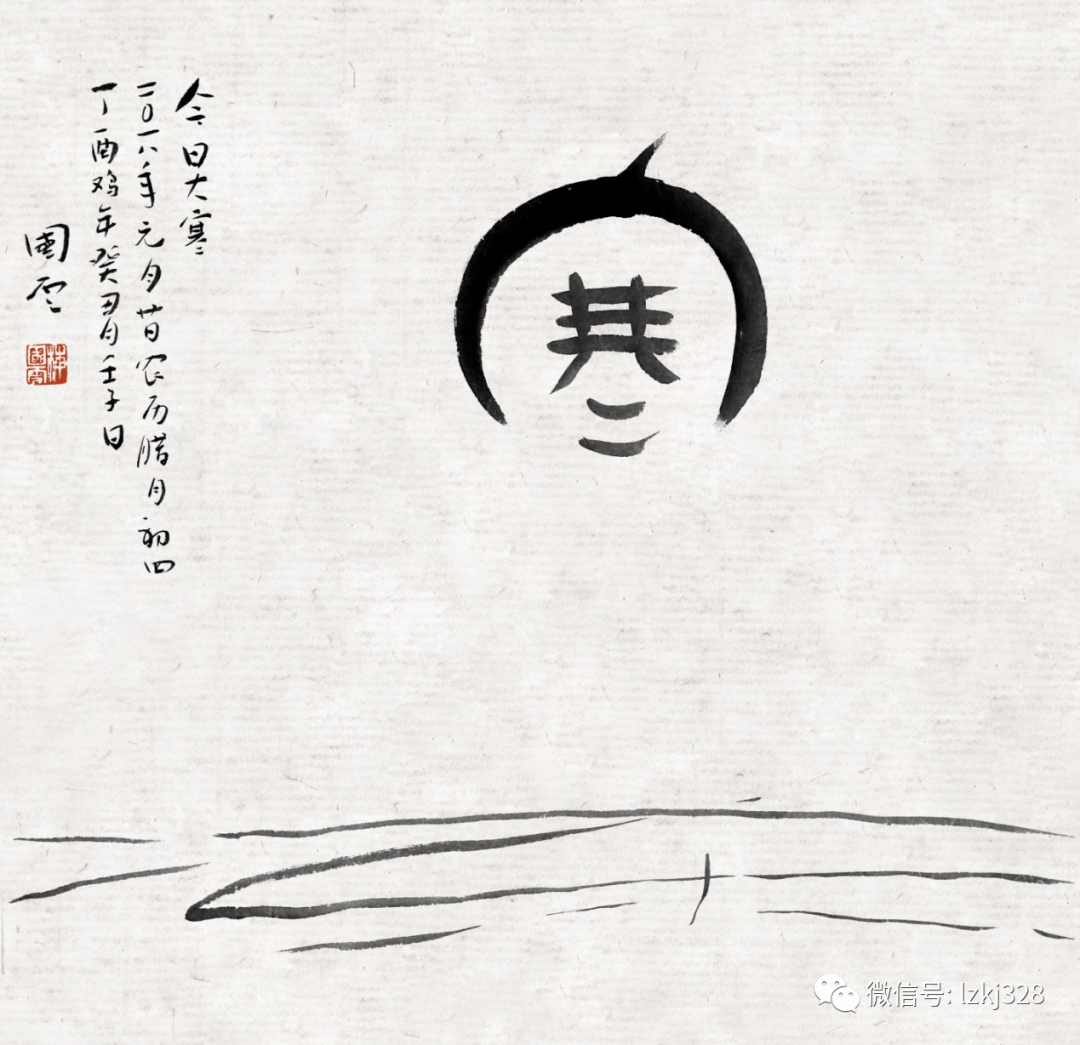 寒
今日大寒
二〇一八年元月廿日农历腊月初四
丁酉鸡年癸丑月壬子日
國雲
微信号: lzkj328